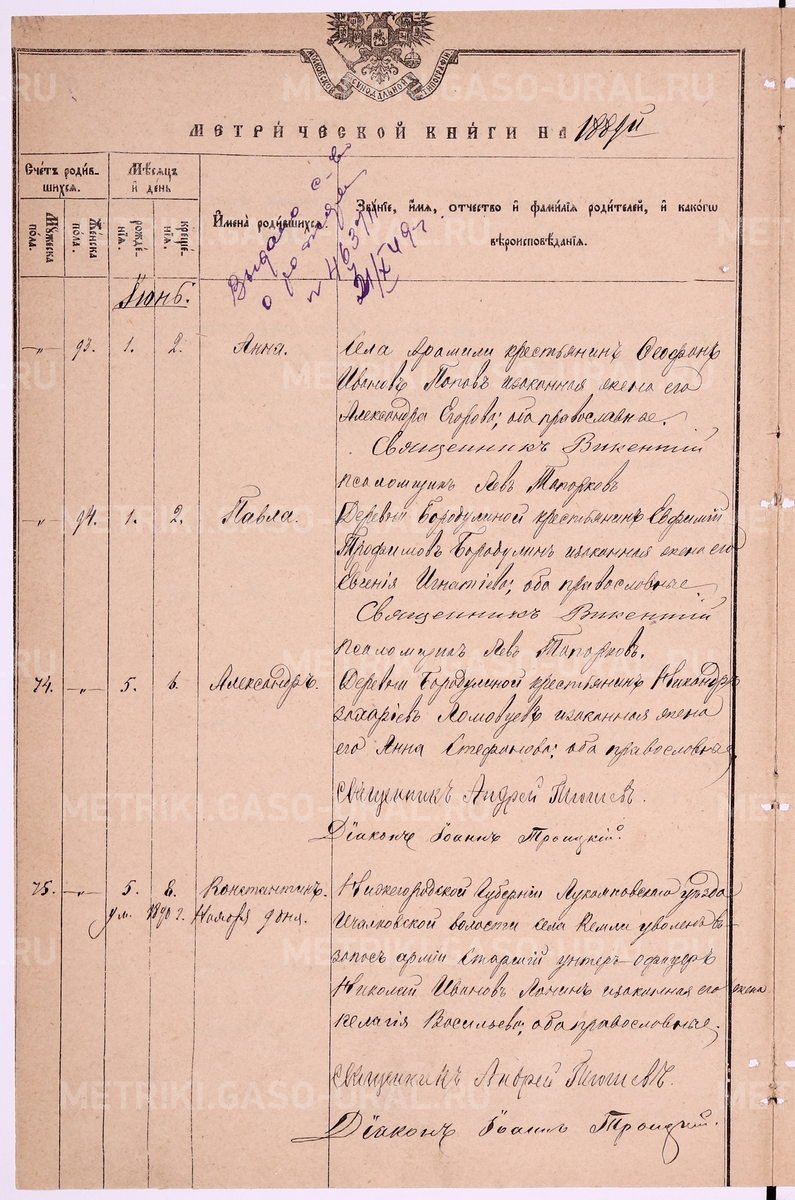 МОСКОВСКОЙ СѴНОДАЛЬНОЙ ТИПОГРАФІИ
МЕТРИЧЕСКОЙ КНИГИ НА 1889й
Счетъ родив-
шихся.
Мѣсяцъ
и день
Имена родившихся.
Званіе, имя, отчество и фамилія родителей, и какогѡ
вѣроисповѣданія.
Мꙋжеска
пола.
Женска
пола.
рожде-
нія.
креще-
нія.
Выдано с-во
о рождении
n 463711
21/X 49 г.
Іюнь.
-"- 93. 1. 2. Анна. Села Арамили крестьянинъ Ѳеофанъ
Ивановъ Поповъ изаконная жена его
Александра Егорова; оба православные.
Священникъ Викентій
псаломщикъ Левъ Топорковъ
-"- 94. 1. 2. Павла. Деревни Бородулиной крестьянинъ Евфимій
Трофимовъ Бородулинъ изаконная жена его
Евгенія Игнатіева; оба православные
Священникъ Викентій
псаломщикъ Левъ Топорковъ.
74. -"- 5. 6. Александръ. Деревни Бородулиной крестьянинъ Никандръ
Захаріевъ Ломовцевъ изаконная жена
его Анна Стефанова; оба православные,
Священникъ Андрей
Діаконъ Іоаннъ Троицкій.
75. -"- 5. 8. Константинъ. Нижегородской Губерніи Лукояновскаго уѣзда
ум. 1890 г. Ноября дня. Ичалковской волости села Кемли уволенъ въ
запасъ арміи Старшій унтеръ-офицеръ
Николай Ивановъ Лонинъ изаконная его жена
Пелагія Васильева; оба православные,
Священникъ Андрей
Діаконъ Іоаннъ Троицкій.
METRIKI.GASO-URAL.RU